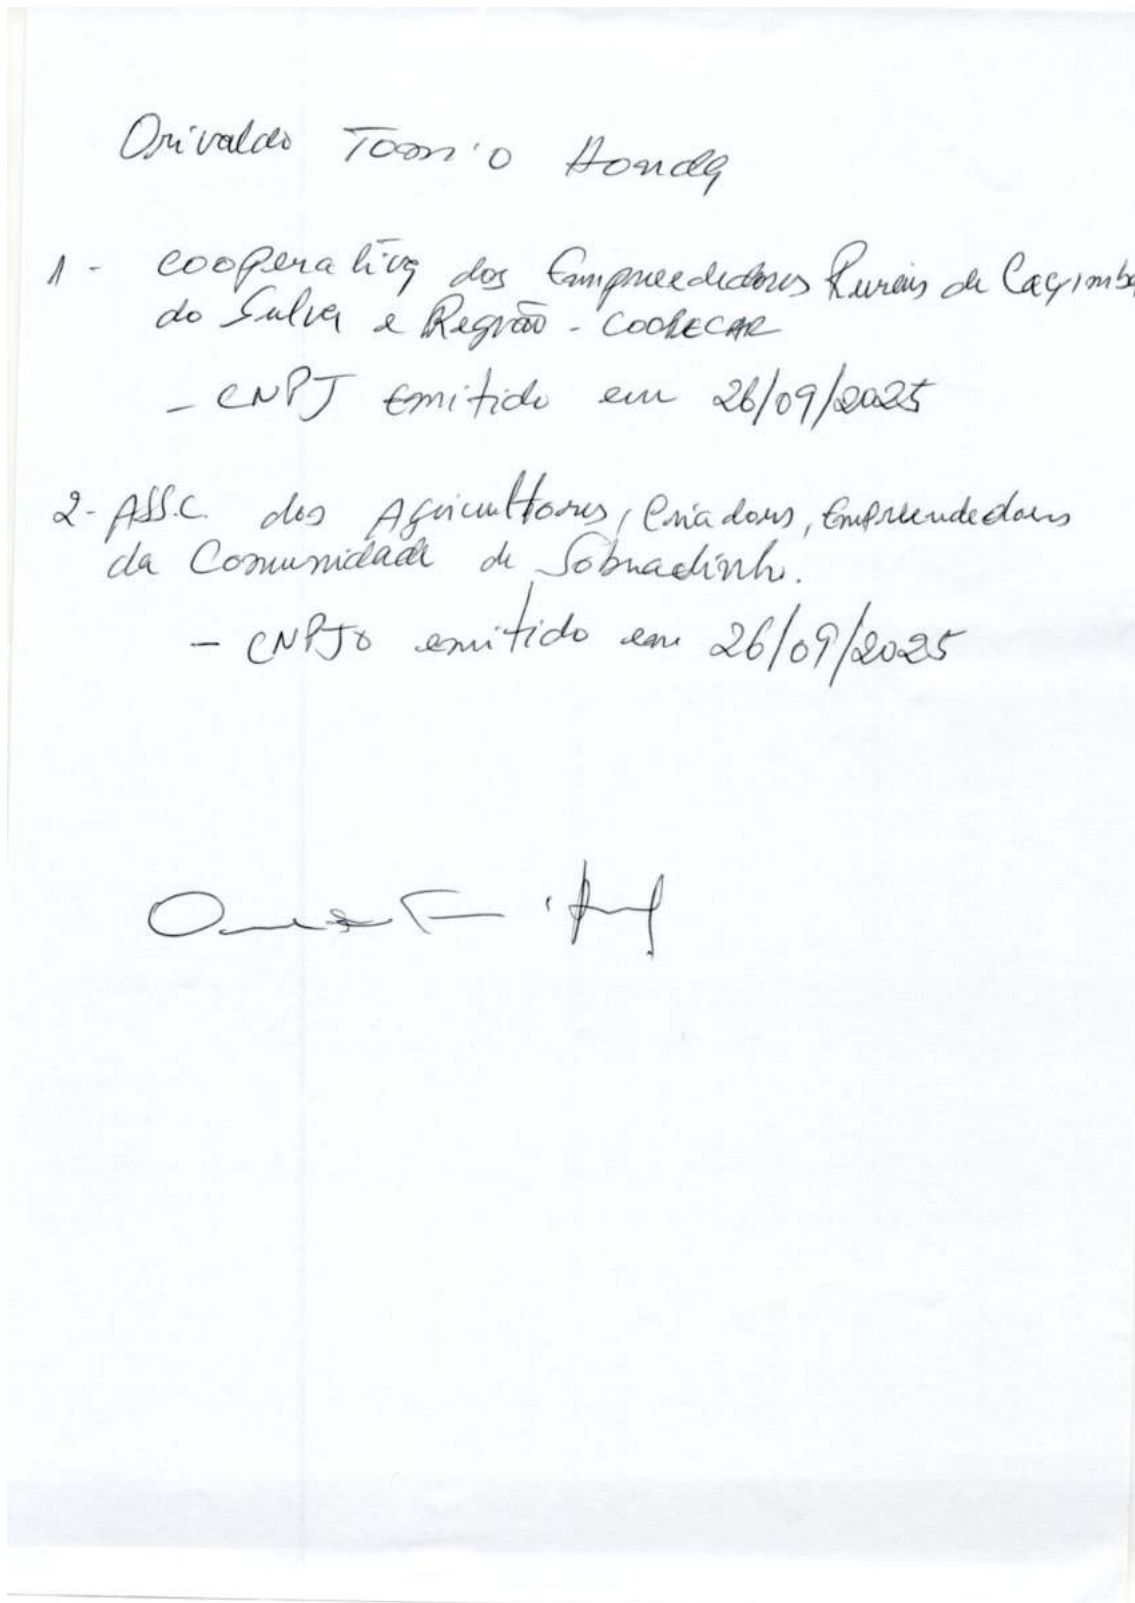 Orivaldo Tomio Honda
1 - Cooperativa dos Empreededores Rurais de Cacimba
do Silva e Região - COOPECAR
- CNPJ emitido em 26/09/2025
2 - ASS.C. dos Agricultores, Criadores, Empreendedores
da Comunidade de Sobradinho.
- CNPJ emitido em 26/09/2025